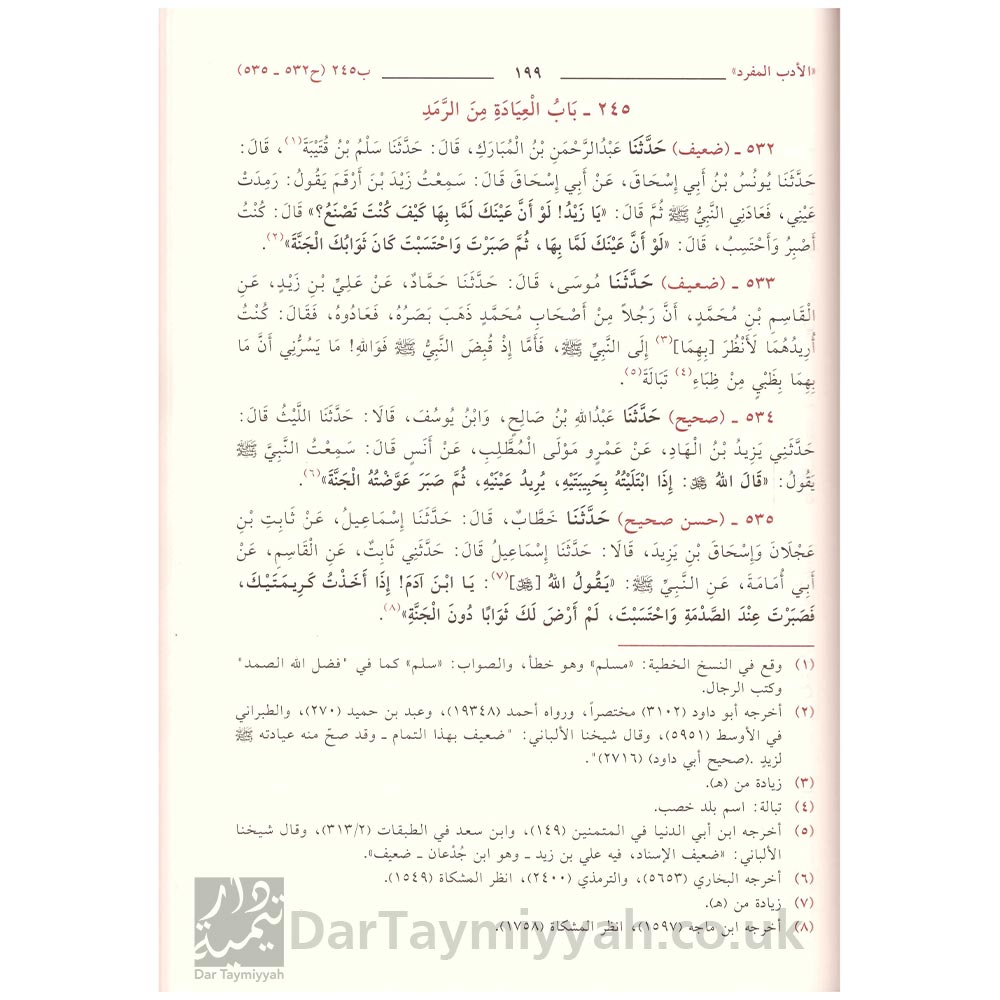 «الأدب المفرد» ١٩٩ ب٢٤٥ (ح٥٣٢ ـ ٥٣٥)
٢٤٥ ـ بَابُ الْعِيَادَةِ مِنَ الرَّمَدِ
٥٣٢ ـ (ضعيف) حَدَّثَنَا عَبْدُالرَّحْمَنِ بْنُ الْمُبَارَكِ، قَالَ: حَدَّثَنَا سَلْمُ بْنُ قُتَيْبَةَ(١)، قَالَ:
حَدَّثَنَا يُونُسُ بْنُ أَبِي إِسْحَاقَ، عَنْ أَبِي إِسْحَاقَ قَالَ: سَمِعْتُ زَيْدَ بْنَ أَرْقَمَ يَقُولُ: رَمِدَتْ
عَيْنِي، فَعَادَنِي النَّبِيُّ ﷺ ثُمَّ قَالَ: «يَا زَيْدُ! لَوْ أَنَّ عَيْنَكَ لَمَّا بِهَا كَيْفَ كُنْتَ تَصْنَعُ؟» قَالَ: كُنْتُ
أَصْبِرُ وَأَحْتَسِبُ، قَالَ: «لَوْ أَنَّ عَيْنَكَ لَمَّا بِهَا، ثُمَّ صَبَرْتَ وَاحْتَسَبْتَ كَانَ ثَوَابُكَ الْجَنَّةَ»(٢).
٥٣٣ ـ (ضعيف) حَدَّثَنَا مُوسَى، قَالَ: حَدَّثَنَا حَمَّادٌ، عَنْ عَلِيِّ بْنِ زَيْدٍ، عَنِ
الْقَاسِمِ بْنِ مُحَمَّدٍ، أَنَّ رَجُلاً مِنْ أَصْحَابِ مُحَمَّدٍ ذَهَبَ بَصَرُهُ، فَعَادُوهُ، فَقَالَ: كُنْتُ
أُرِيدُهُمَا لَأَنْظُرَ [بِهِمَا](٣) إِلَى النَّبِيِّ ﷺ، فَأَمَّا إِذْ قُبِضَ النَّبِيُّ ﷺ فَوَاللهِ! مَا يَسُرُّنِي أَنَّ مَا
بِهِمَا بِظَبْيٍ مِنْ ظِبَاءِ(٤) تَبَالَةَ(٥).
٥٣٤ ـ (صحيح) حَدَّثَنَا عَبْدُاللهِ بْنُ صَالِحٍ، وَابْنُ يُوسُفَ، قَالَا: حَدَّثَنَا اللَّيْثُ قَالَ:
حَدَّثَنِي يَزِيدُ بْنُ الْهَادِ، عَنْ عَمْرٍو مَوْلَى الْمُطَّلِبِ، عَنْ أَنَسٍ قَالَ: سَمِعْتُ النَّبِيَّ ﷺ
يَقُولُ: «قَالَ اللهُ ﷻ: إِذَا ابْتَلَيْتُهُ بِحَبِيبَتَيْهِ، يُرِيدُ عَيْنَيْهِ، ثُمَّ صَبَرَ عَوَّضْتُهُ الْجَنَّةَ»(٦).
٥٣٥ ـ (حسن صحيح) حَدَّثَنَا خَطَّابٌ، قَالَ: حَدَّثَنَا إِسْمَاعِيلُ، عَنْ ثَابِتِ بْنِ
عَجْلَانَ وَإِسْحَاقَ بْنِ يَزِيدَ، قَالَا: حَدَّثَنَا إِسْمَاعِيلُ قَالَ: حَدَّثَنِي ثَابِتٌ، عَنِ الْقَاسِمِ، عَنْ
أَبِي أُمَامَةَ، عَنِ النَّبِيِّ ﷺ: «يَقُولُ اللهُ [ﷻ](٧): يَا ابْنَ آدَمَ! إِذَا أَخَذْتُ كَرِيمَتَيْكَ،
فَصَبَرْتَ عِنْدَ الصَّدْمَةِ وَاحْتَسَبْتَ، لَمْ أَرْضَ لَكَ ثَوَابًا دُونَ الْجَنَّةِ»(٨).
(١) وقع في النسخ الخطية: «مسلم» وهو خطأ، والصواب: «سلم» كما في "فضل الله الصمد"
وكتب الرجال.
(٢) أخرجه أبو داود (٣١٠٢) مختصراً، ورواه أحمد (١٩٣٤٨)، وعبد بن حميد (٢٧٠)، والطبراني
في الأوسط (٥٩٥١)، وقال شيخنا الألباني: "ضعيف بهذا التمام ـ وقد صحّ منه عيادته ﷺ
لزيدٍ .(صحيح أبي داود) (٢٧١٦)".
(٣) زيادة من (هـ).
(٤) تبالة: اسم بلد خصب.
(٥) أخرجه ابن أبي الدنيا في المتمنين (١٤٩)، وابن سعد في الطبقات (٣١٣/٢)، وقال شيخنا
الألباني: «ضعيف الإسناد، فيه علي بن زيد ـ وهو ابن جُدْعان ـ ضعيف».
(٦) أخرجه البخاري (٥٦٥٣)، والترمذي (٢٤٠٠)، انظر المشكاة (١٥٤٩).
(٧) زيادة من (هـ).
(٨) أخرجه ابن ماجه (١٥٩٧)، انظر المشكاة (١٧٥٨).
دار تيمية
Dar Taymiyyah
DarTaymiyyah.co.uk